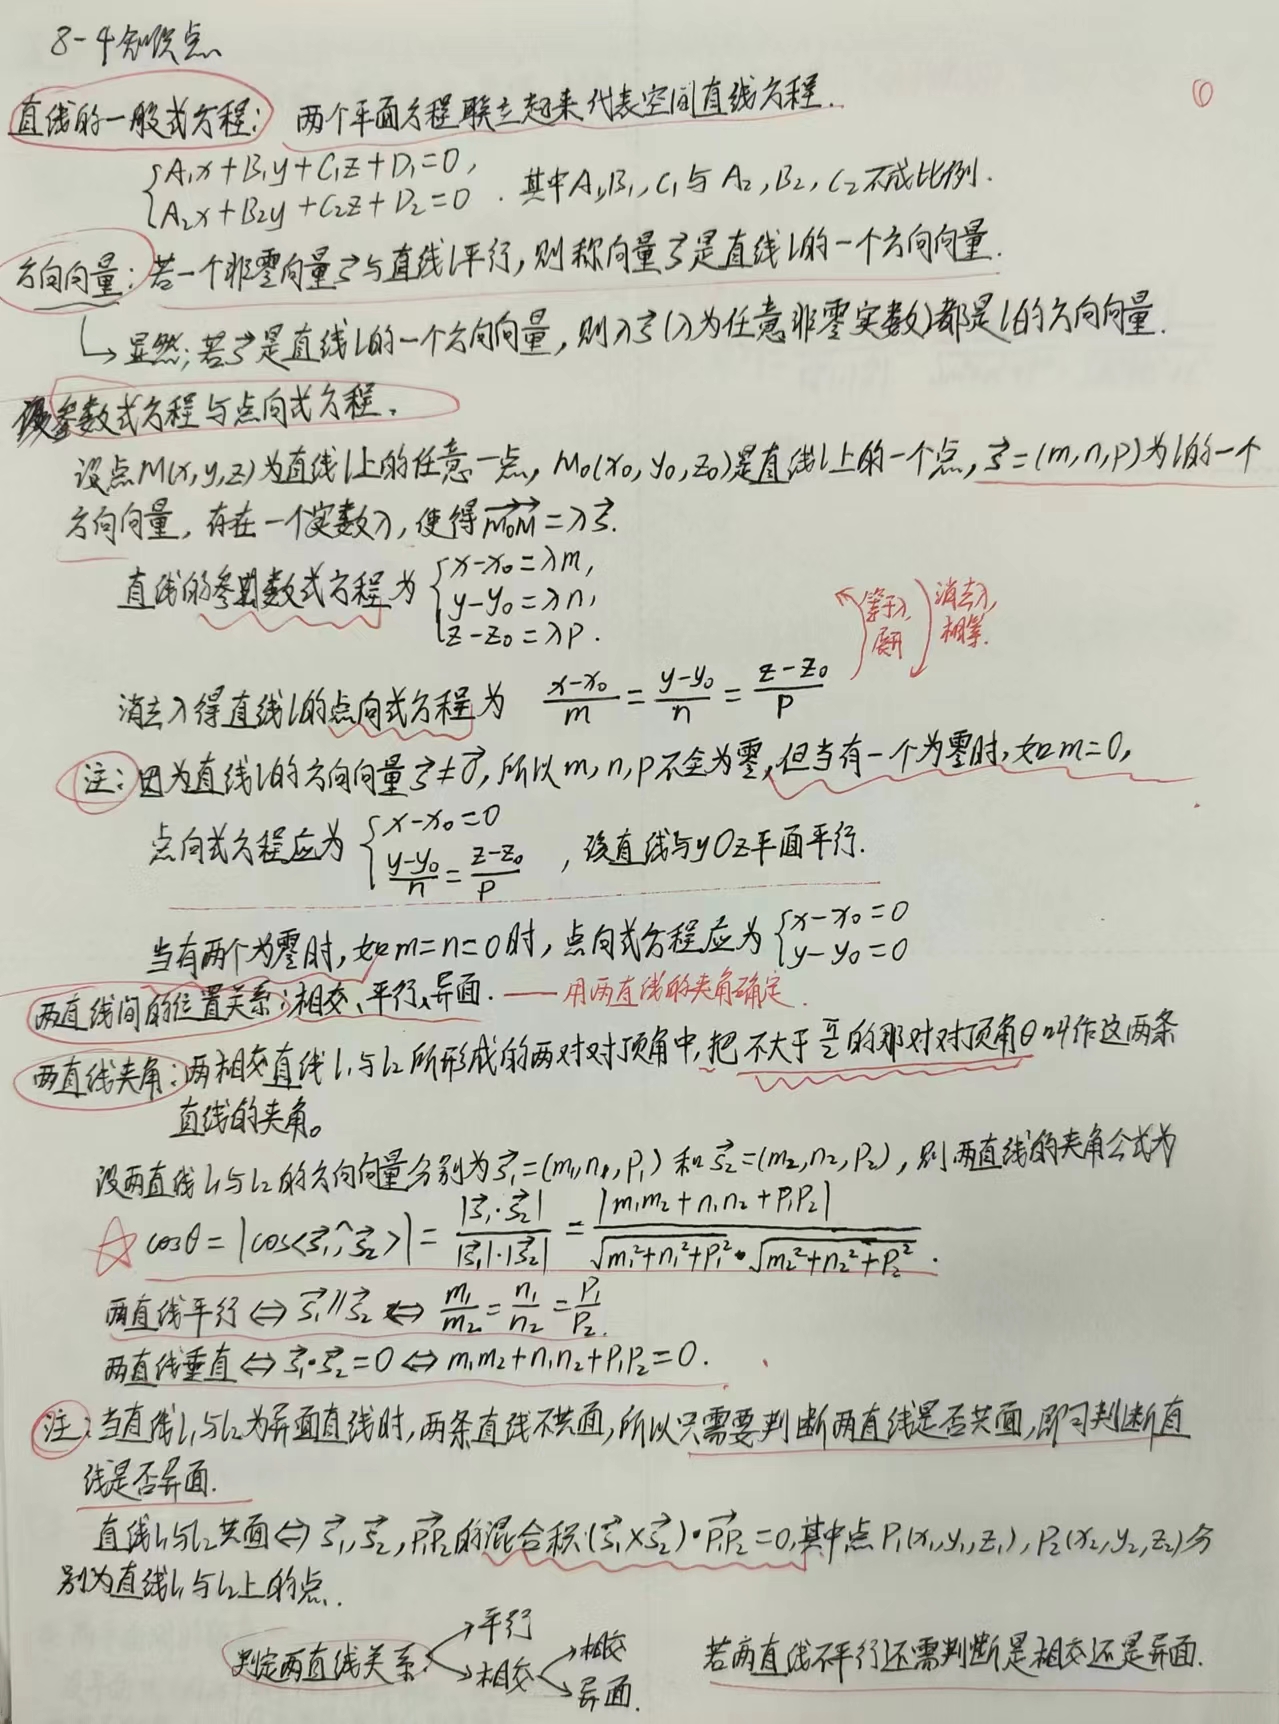 8-4知识点
①
直线的一般式方程: 两个平面方程联立起来代表空间直线方程.
{A₁x+B₁y+C₁z+D₁=0,
A₂x+B₂y+C₂z+D₂=0. 其中A₁,B₁,C₁与A₂,B₂,C₂不成比例.
方向向量: 若一个非零向量s⃗与直线l平行,则称向量s⃗是直线l的一个方向向量.
↳显然;若s⃗是直线l的一个方向向量,则λs⃗(λ为任意非零实数)都是l的方向向量.
参数式方程与点向式方程.
设点M(x,y,z)为直线l上的任意一点, M₀(x₀,y₀,z₀)是直线l上的一个点, s⃗=(m,n,p)为l的一个
方向向量, 存在一个实数λ, 使得M₀M⃗=λs⃗.
直线的参数式方程为{x-x₀=λm,
y-y₀=λn,
z-z₀=λp.
等于λ, 展开
消去λ, 相等.
消去λ得直线l的点向式方程为 (x-x₀)/m=(y-y₀)/n=(z-z₀)/p
注: 因为直线l的方向向量s⃗≠0⃗, 所以m,n,p不全为零, 但当有一个为零时, 如m=0,
点向式方程应为{x-x₀=0
(y-y₀)/n=(z-z₀)/p , 该直线与yOz平面平行.
当有两个为零时, 如m=n=0时, 点向式方程应为{x-x₀=0
y-y₀=0
两直线间的位置关系: 相交、平行、异面. ——用两直线的夹角确定.
两直线夹角: 两相交直线l₁与l₂所形成的两对对顶角中, 把不大于π/2的那对对顶角θ叫作这两条
直线的夹角。
设两直线l₁与l₂的方向向量分别为s⃗₁=(m₁,n₁,p₁)和s⃗₂=(m₂,n₂,p₂), 则两直线的夹角公式为
☆ cosθ=|cos<s⃗₁^s⃗₂>|=|s⃗₁·s⃗₂|/(|s⃗₁|·|s⃗₂|)=|m₁m₂+n₁n₂+p₁p₂|/(√(m₁²+n₁²+p₁²)·√(m₂²+n₂²+p₂²)).
两直线平行⇔s⃗₁∥s⃗₂⇔m₁/m₂=n₁/n₂=p₁/p₂.
两直线垂直⇔s⃗₁·s⃗₂=0⇔m₁m₂+n₁n₂+p₁p₂=0.
注: 当直线l₁与l₂为异面直线时, 两条直线不共面, 所以只需要判断两直线是否共面, 即可判断直
线是否异面.
直线l₁与l₂共面⇔s⃗₁,s⃗₂,P₁P₂⃗的混合积(s⃗₁×s⃗₂)·P₁P₂⃗=0, 其中点P₁(x₁,y₁,z₁), P₂(x₂,y₂,z₂)分
别为直线l₁与l₂上的点.
→平行
判定两直线关系 →相交 →相交
→异面.
若两直线不平行还需判断是相交还是异面.